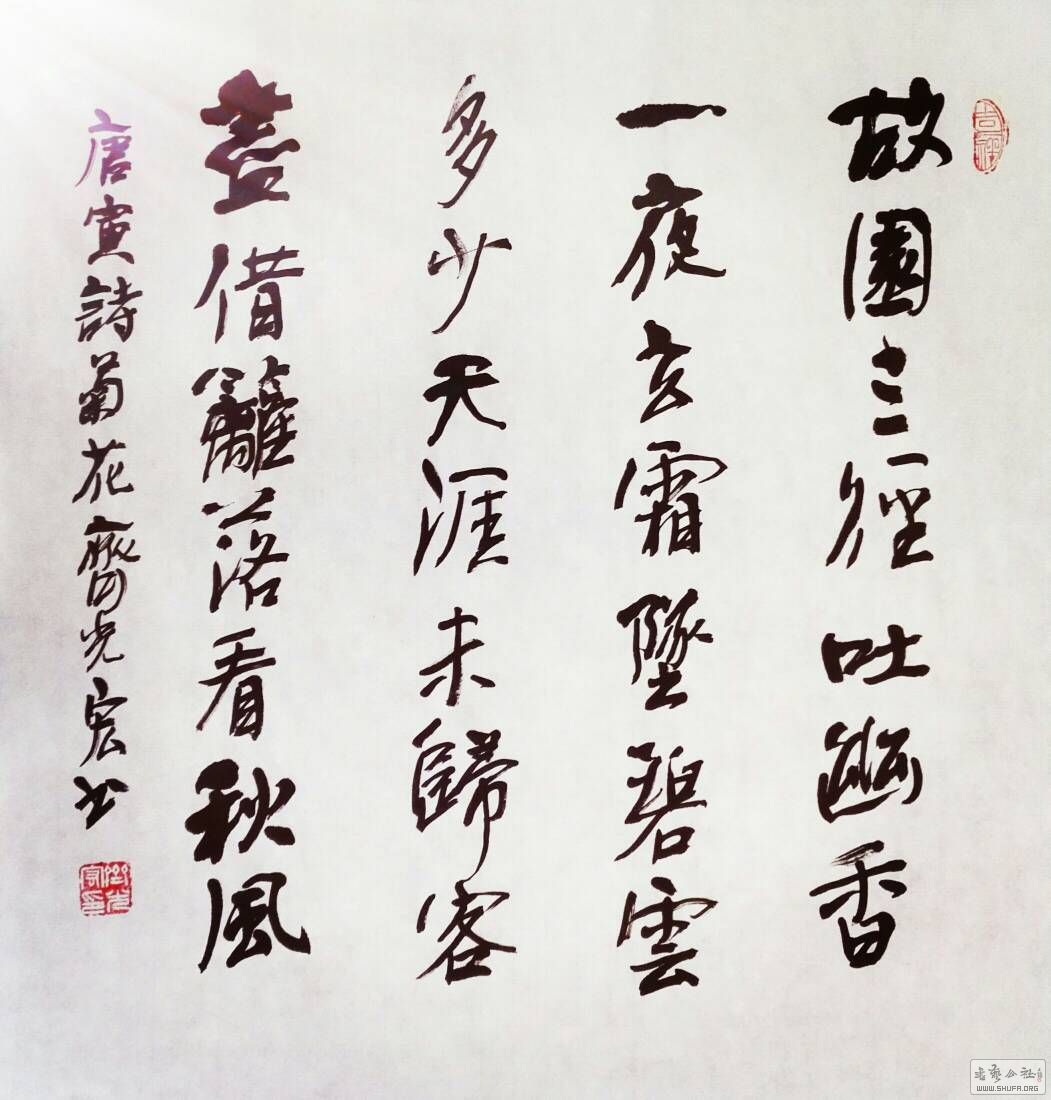 故園三徑吐幽香
一夜玄霜墜碧雲
多少天涯未歸客
盡借籬落看秋風
唐寅詩菊花齊光宏书
吉祥
書藝公社
WWW.SHUFA.ORG